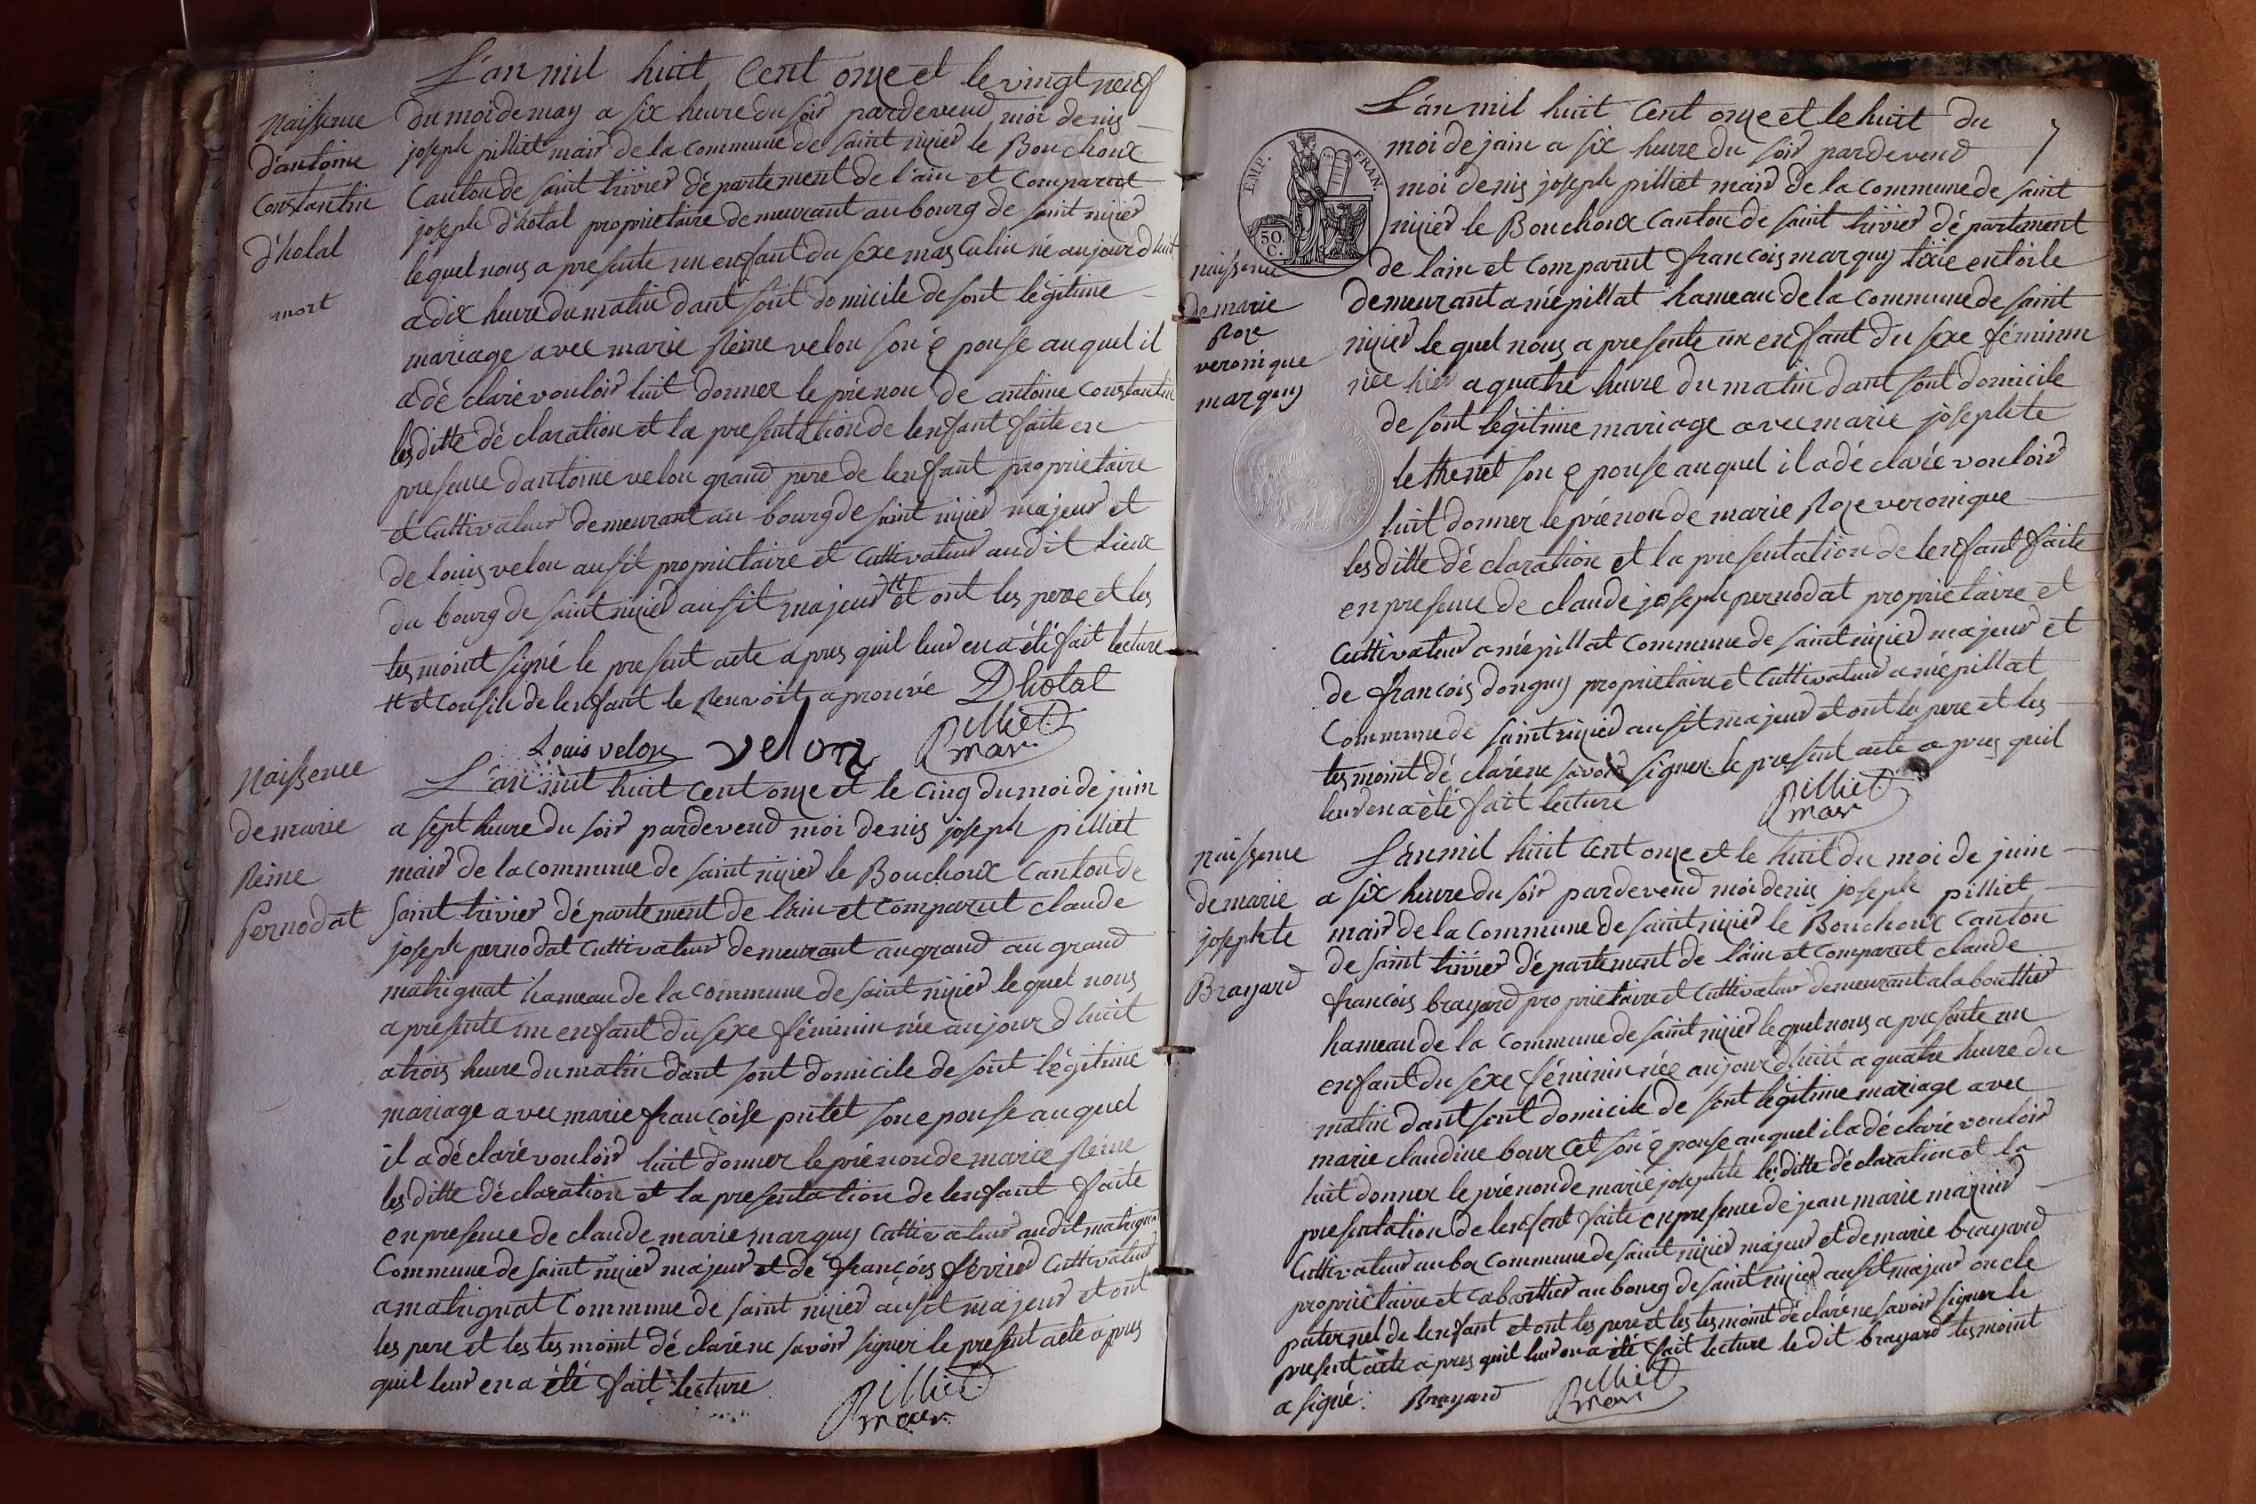 L'an mil huit Cent onze et le vingt neuf
Naissence
d'antoine
Constantin
d'holal
mort
du moi de may a six heure du soir pardevend moi denis
joseph pilliet mair de la Commune de saint nizier le Bouchoux
Canton de saint trivier département de l'ain et Comparut
joseph d'hotal proprietaire demeurant au bourg de saint nizier
lequel nous a presente un enfant du sexe masculin né aujourd huit
a dix heure du matin dant sont domicile de sont légitime
mariage avec marie Reine velon son épouse auquel il
a dé claré vouloir luit donner le prénon de antoine Constantin
les ditte dé claration et la presentation de lenfant faite en
presence dantoine velon grand pere de lenfant proprietaire
et Cultivateur demeurant au bourg de saint nizier majeur et
de louis velon ausit proprietaire et Cultivateur audit lieux
du bourg de saint nizier ausit majeur # et ont les pere et les
tesmoint signé le present acte apres quil leur en a été fait lecture
# et Cousin de lenfant le Renvoit aprouvé Dhotal
Louis velon velon Pilliet
mair
Naissence
de marie
Réine
Pernodat
L'an mil huit Cent onze et le cinq du moi de juin
a sept heure du soir pardevend moi denis joseph pilliet
mair de la commune de saint nizier le Bouchoux Canton de
saint trivier département de l'ain et Comparut claude
joseph pernodat Cultivateur demeurant au grand au grand
matrignat hameau de la Commune de saint nizier lequel nous
a presente un enfant du sexe féminin née aujour d huit
a trois heure du matin dant sont domicile de sont légitime
mariage avec marie françoise putet son epouse auquel
il a déclaré vouloir luit donner le prénon de marie Réine
les ditte dé claration et la presentation de lenfant faite
en presence de claude marie marquy Cultivateur audit matrignat
Commune de saint nizier majeur et de françois février Cultivateur
a matrignat Commune de saint nizier ausit majeur et ont
les pere et les tesmoint dé claré ne savoir signer le present acte apres
quil leur en a été fait lecture
Pilliet
mair
7
EMP. FRAN.
50.
C.
L'an mil huit Cent onze et le huit du
moi de juin a six heure du soir pardevend
moi denis joseph pilliet mair de la Commune de saint
nizier le Bouchoux Canton de saint trivier dé partement
de lain et Comparut francois marquy tixie en toile
naissence
de marie
Roze
veronique
marquy
demeurant a mépillat hameau de la Commune de saint
nizier le quel nous a presente un enfant du sexe féminin
née hier a quatre heure du matin dant sont domicile
de sont légitime mariage avec marie josephte
lethenet son épouse auquel il a dé claré vouloir
luit donner le prénon de marie Roze veronique
les ditte dé claration et la presentation de lenfant faite
en presence de claude joseph pernodat proprietaire et
Cultivateur a mépillat Commune de saint nizier majeur et
de francois donguy proprietaire et Cultivateur a mépillat
Commune de saint nizier ausit majeur et ont les pere et les
tesmoint dé claré ne savoir signer le present acte apres quil
leur en a été fait lecture
Pilliet
mair
naissence
de marie
josephte
Brayard
L'an mil huit Cent onze et le huit du moi de juin
a six heure du soir pardevend moi denis joseph pilliet
mair de la Commune de saint nizier le Bouchoux Canton
de saint trivier département de l'ain et Comparut claude
francois brayard proprietaire et Cultivateur demeurant a la bouttier
hameau de la Commune de saint nizier lequel nous a presente un
enfant du sexe féminin née aujourdhuit a quatre heure du
matin dant sont domicile de sont légitime mariage avec
marie claudine bourcet son épouse auquel il a dé claré vouloir
luit donner le prénon de marie josephte les ditte déclaration et la
presentation de lenfent faite en presence de jean marie mazuir
Cultivateur au box Commune de saint nizier majeur et de marie brayard
proprietaire et Cabarttier au bourg de saint nizier ausit majeur oncle
paternel de lenfant et ont les pere et les tesmoint dé claré ne savoir signer le
present acte apres quil leur en a été fait lecture le dit brayard tesmoint
a signé. Brayard Pilliet
mair